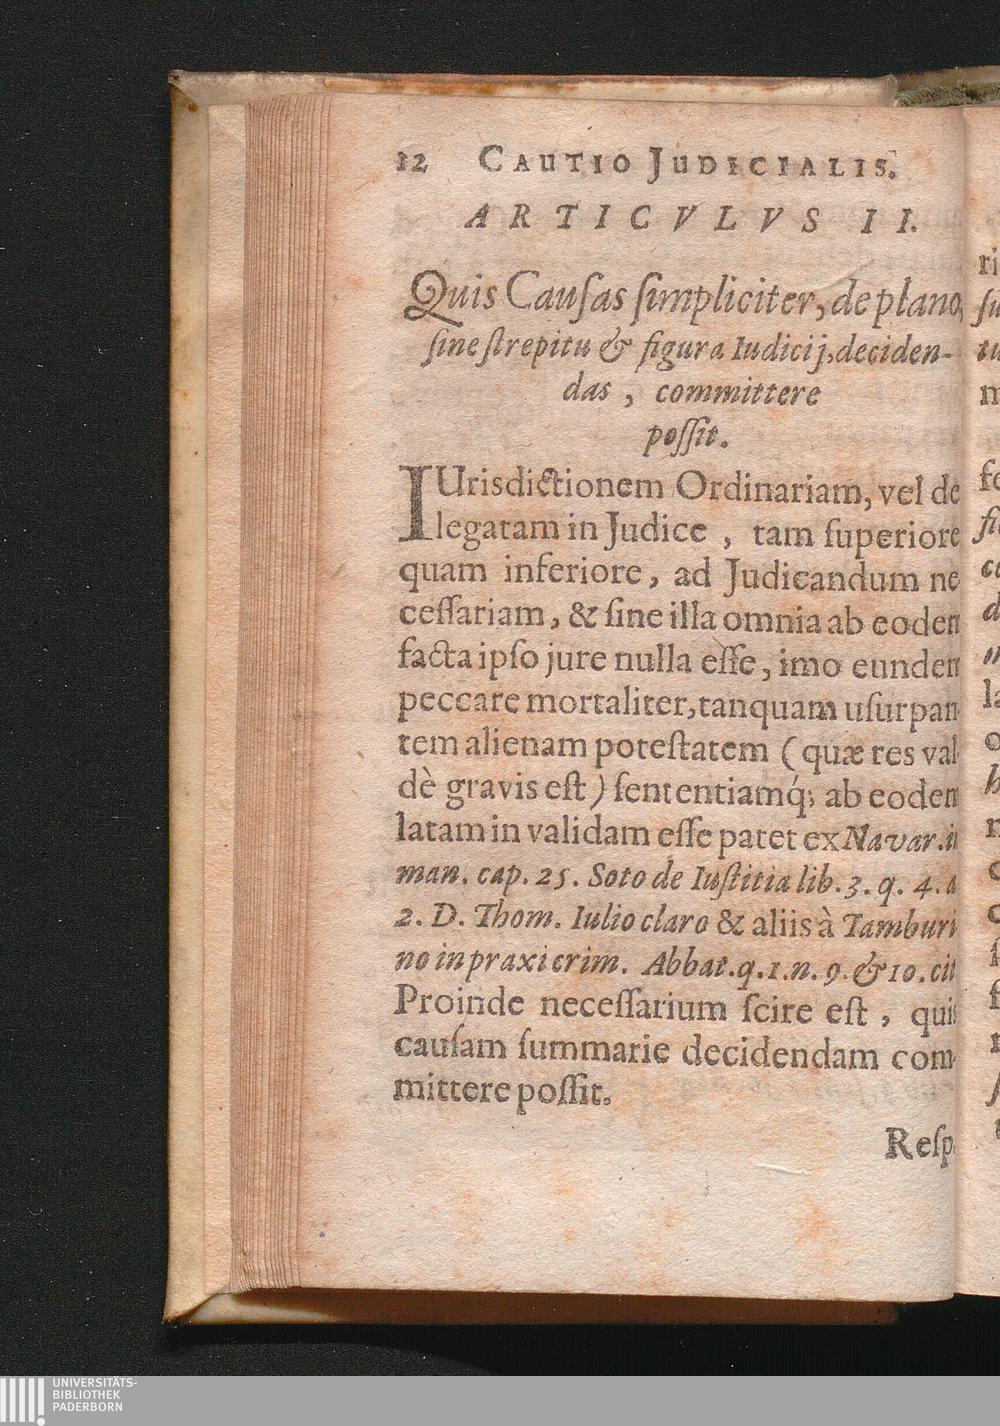 12 CAUTIO JUDICIALIS.
ARTICVLVS II.
Quis Cauſas ſimpliciter, de plano,
ſine ſtrepitu & figura Iudicij, deciden-
das, committere
poſſit.
IUrisdictionem Ordinariam, vel de
legatam in Judice, tam ſuperiore
quam inferiore, ad Judicandum ne
ceſſariam, & ſine illa omnia ab eodem
facta ipſo jure nulla eſſe, imo eundem
peccare mortaliter, tanquam uſurpan
tem alienam poteſtatem (quæ res val
dè gravis eſt) ſententiamq́; ab eodem
latam in validam eſſe patet ex Navar. in
man. cap. 25. Soto de Iuſtitia lib. 3. q. 4. a
2. D. Thom. Iulio claro & aliis à Tamburi
no in praxi crim. Abbat. q. 1. n. 9. & 10. cit
Proinde neceſſarium ſcire eſt, quis
cauſam ſummarie decidendam com-
mittere poſſit.
Reſp.
UNIVERSITÄTS-
BIBLIOTHEK
PADERBORN